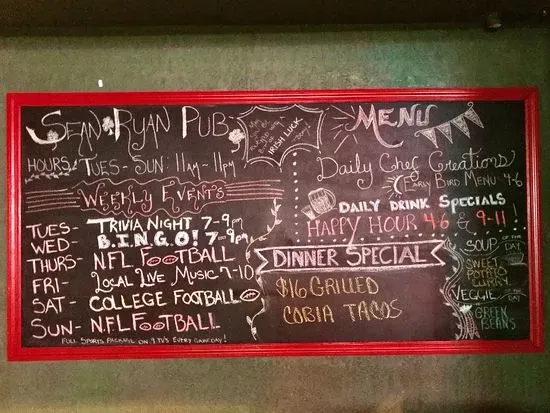 SEAN RYAN PUB
HOURS: TUES - SUN: 11AM - 11PM
WEEKLY EVENTS
TUES- TRIVIA NIGHT 7-9pm
WED- B.I.N.G.O! 7-9pm
THURS- NFL FOOTBALL
FRI- LOCAL LIVE MUSIC 7-10
SAT- COLLEGE FOOTBALL
SUN- NFL FOOTBALL
FULL SPORTS PACKAGE ON 9 TVS EVERY GAMEDAY!
IRISH LUCK
MENU
Daily Chef Creations
EARLY BIRD MENU 4-6
DAILY DRINK SPECIALS
HAPPY HOUR 4-6 & 9-11!
DINNER SPECIAL
$16 GRILLED
COBIA TACOS
SOUP OF THE DAY
SWEET
POTATO
CURRY
VEGGIE OF THE DAY
GREEN
BEANS